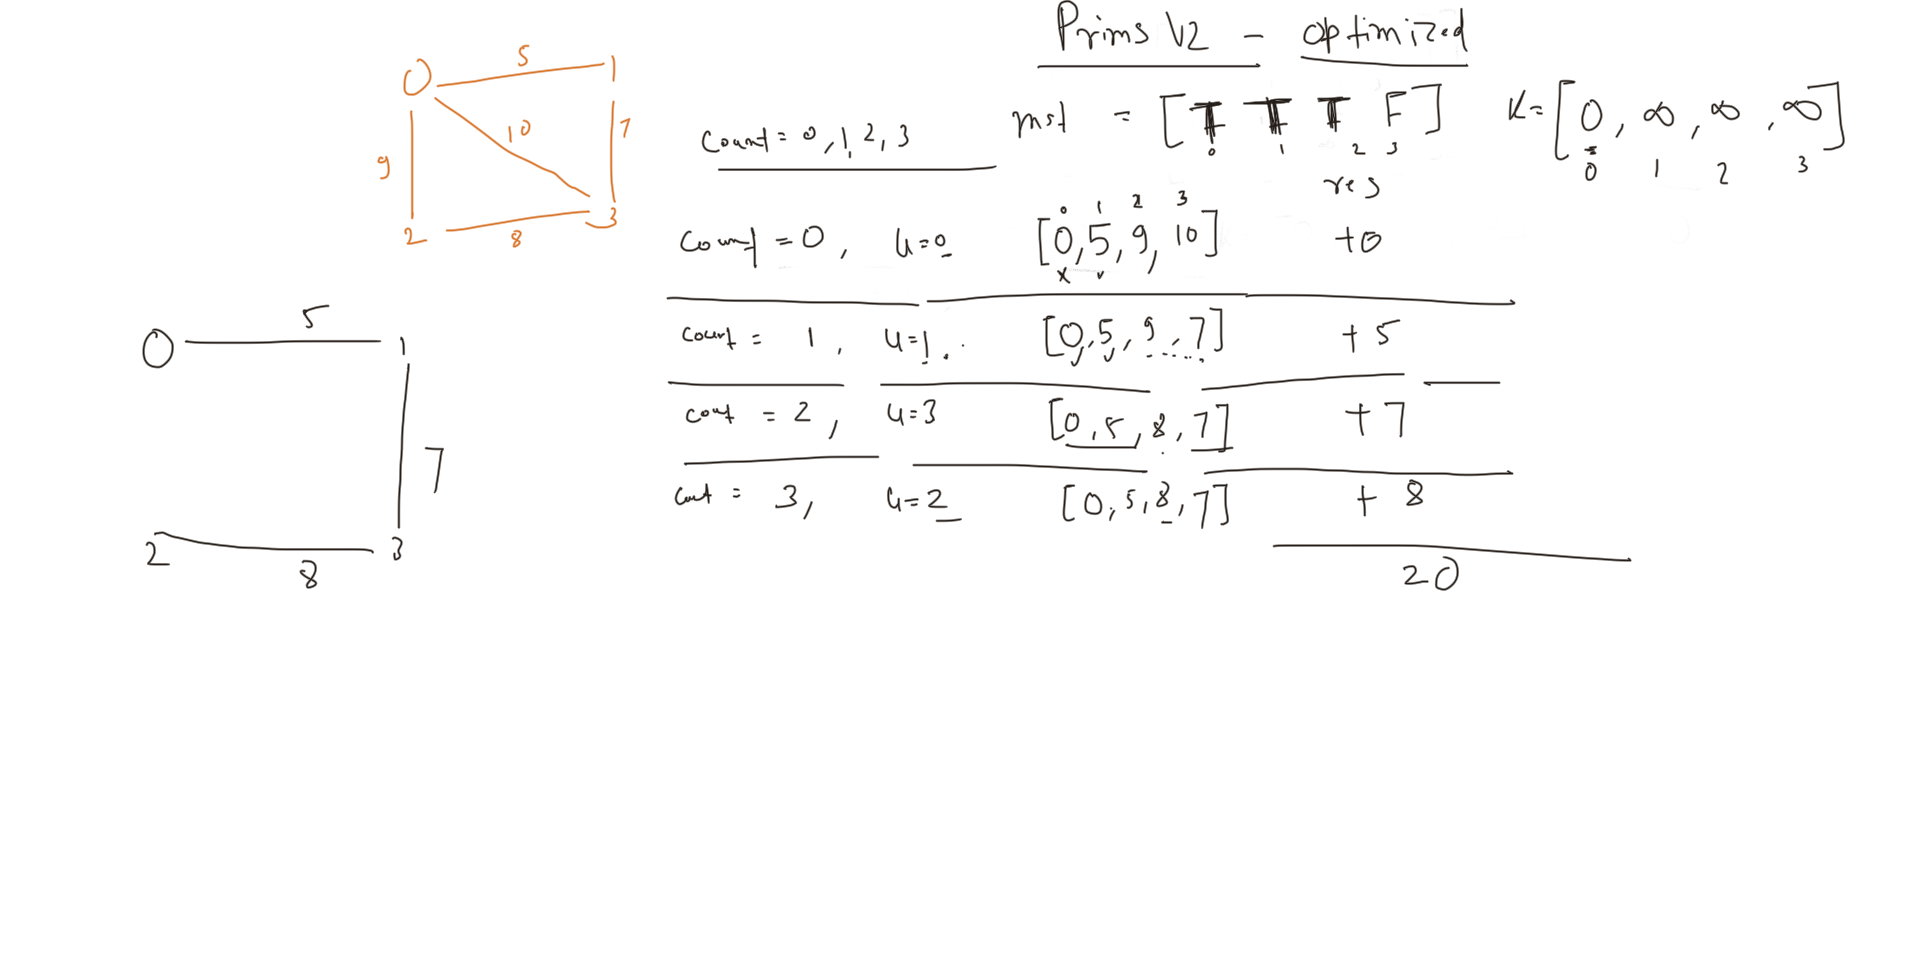 Prims V2 - optimized
5
0 1
10
9
7
2 3
8
Count = 0, 1, 2, 3
mst = [T T T F]
0 1 2 3
K = [0, ∞, ∞, ∞]
0 1 2 3
res
0 1 2 3
Count = 0, u=0 [0, 5, 9, 10] +0
x v
Count = 1, u=1. [0, 5, 9, 7] + 5
Cout = 2, u=3 [0, 5, 8, 7] + 7
Cout = 3, u=2 [0, 5, 8, 7] + 8
20
5
0 1
7
2 3
8